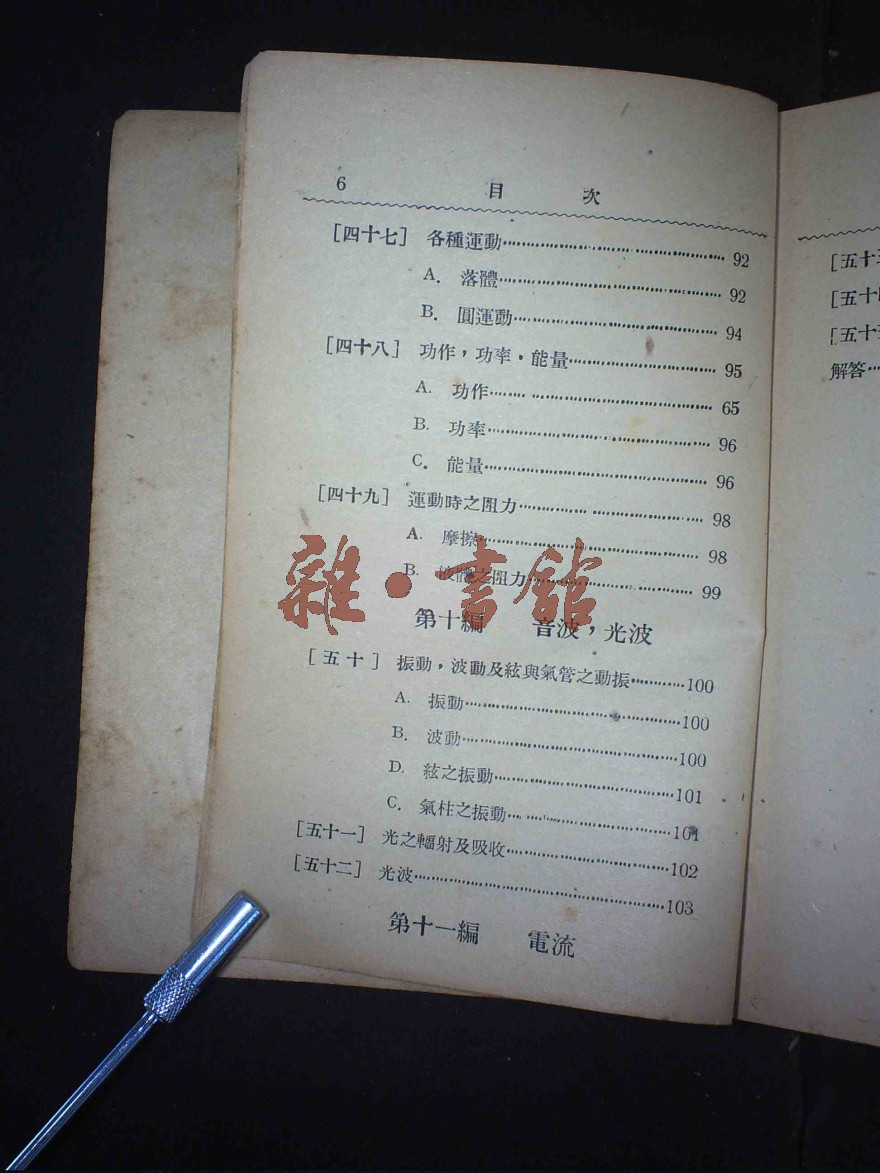 6 目 次
[四十七] 各種運動 92
A. 落體 92
B. 圓運動 94
[四十八] 功作，功率・能量 95
A. 功作 65
B. 功率 96
C. 能量 96
[四十九] 運動時之阻力 98
A. 摩擦 98
B. 液體之阻力 99
雜・書館
第十編 音波，光波
[五十] 振動，波動及絃與氣管之動振 100
A. 振動 100
B. 波動 100
D. 絃之振動 101
C. 氣柱之振動 101
[五十一] 光之輻射及吸收 102
[五十二] 光波 103
第十一編 電流
[五十
[五十
[五十
解答